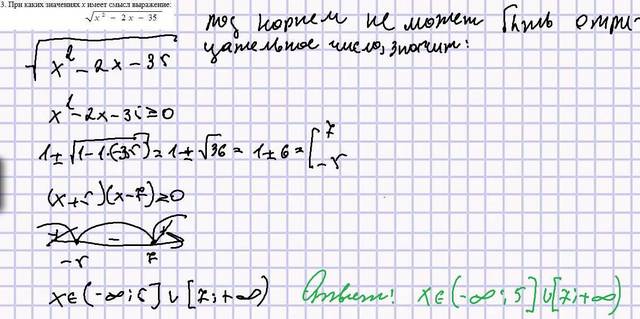 3. При каких значениях x имеет смысл выражение:
√x² − 2x − 35
под корнем не может быть отри-
цательное число, значит:
√x² − 2x − 35
x² − 2x − 35 ≥ 0
1 ± √1 − 1·(−35) = 1 ± √36 = 1 ± 6 = [ 7
−5
(x + 5)(x − 7) ≥ 0
+ − +
−5 7
x ∈ (−∞; 5] ∪ [7; +∞)
Ответ: x ∈ (−∞; 5] ∪ [7; +∞)